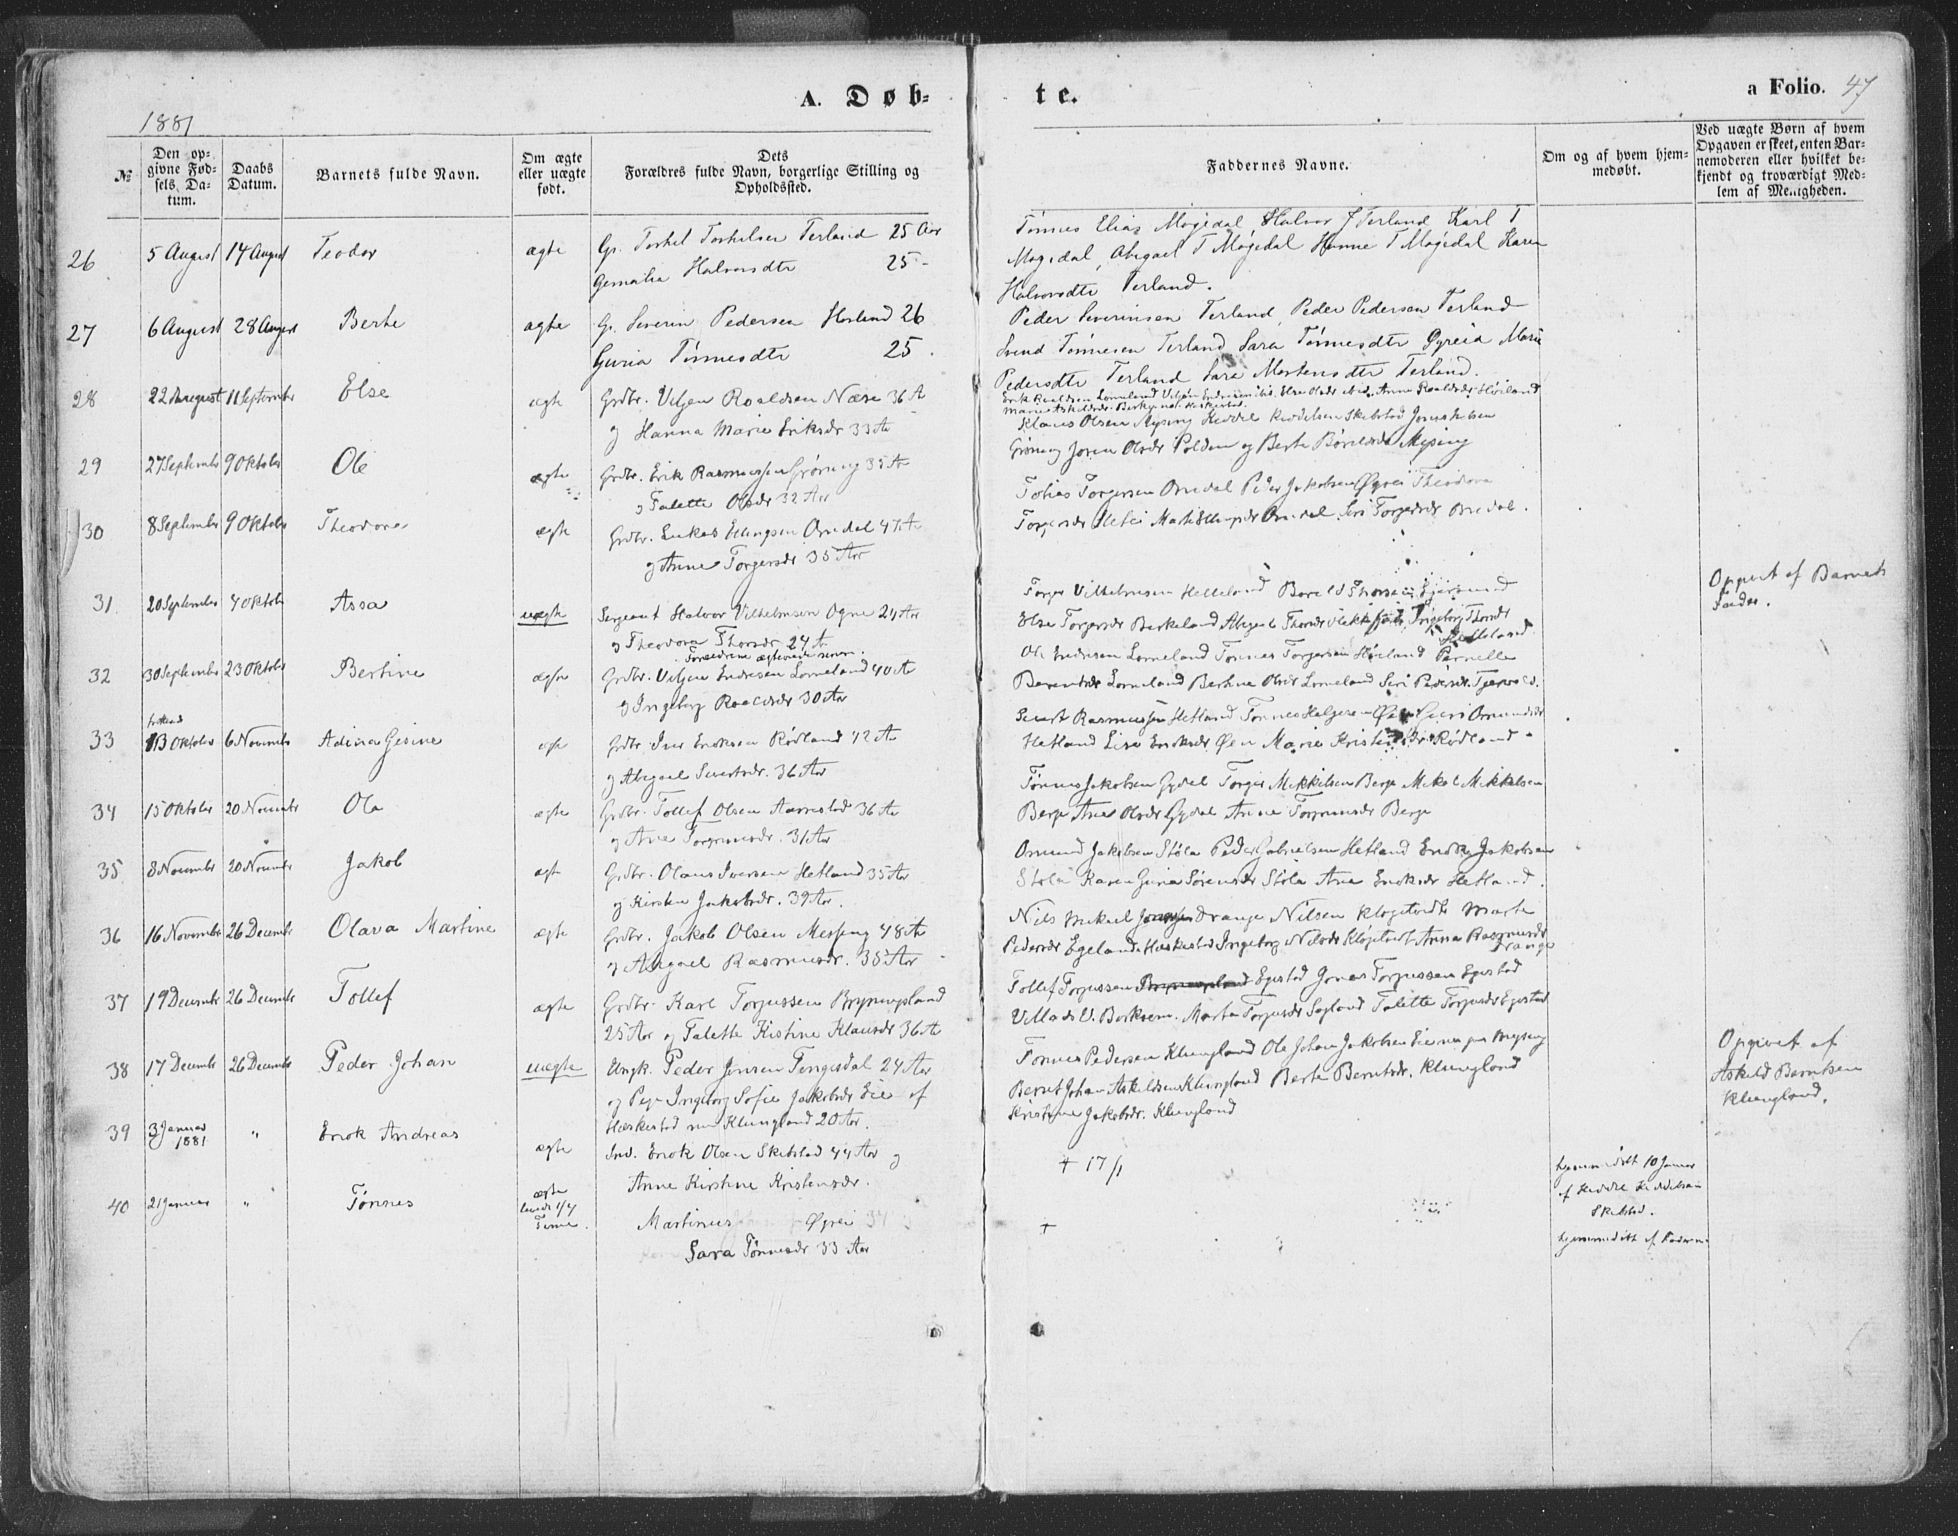 A. Døb-
te.
a Folio. 47
1881
№
Den opgivne Fødsels Datum.
Daabs Datum.
Barnets fulde Navn.
Om ægte eller uægte født.
Dets Forældres fulde Navn, borgerlige Stilling og Opholdssted.
Faddernes Navne.
Om og af hvem hjemmedøbt.
Ved uægte Børn af hvem Opgaven er skeet, enten Barnemoderen eller hvilket bekjendt og troværdigt Medlem af Menigheden.
26 5 August 14 August Teodor ægte Gr. Torkel Torkelsen Terland 25 Aar
Halvorsdtr 25 -
Tønnes Elias Møgedal Halvor J Terland Karl T
Møgedal, Abigael T Møgedal Hanne T Møgedal Karen
Halvorsdtr Terland.
27 6 August 28 August Berte ægte Gr. Severin Pedersen Hetland 26
Guria Tønnesdtr 25.
Peder Severinsen Terland, Peder Pedersen Terland
Svend Tønnesen Terland Sara Tønnesdtr Øgreid Marie
Pedersdtr Terland Sara Mortensdtr Terland.
28 22 August 11 September Else ægte Grdbr. Viljen Roaldsen Næse 36 A
og Hanna Marie Eriksdr 33 Ar
Erik Roaldsen Lomeland Viljen Endresen ibid. Else Olsdr ibid. Anne Roaldsdr Høiland
29 27 September 9 Oktober Ole ægte Grdbr. Erik Rasmussen Grøning 35 Ar
og Talette Olsdr 32 Aar
Klaus Olsen Mysing Keddel Keddelsen Skibstad
Grøning Joren Olsdr Polden og Berte Mysing
30 8 September 9 Oktober Theodora ægte Grdbr. Lukas Ellingsen Omdal 47 Ar
og Anne Torgersdr 35 Aar
Tobias Torgersen Omdal Peder Jakobsen Øgrei Theodora
Omdal, Siri Torgersdr Omdal.
31 20 September 4 Oktober Assa uægte Sergeant Halvor Vilhelmsen Ogne 24 Aar
og Theodora Thorsdr 24 A
Torger Vilhelmsen Helleland
Else Torgersdr Birkeland Abigael Thorsdr Ingeborg Thorsdr
Helleland
Opgivet af Barnets
Fader.
32 30 September 23 Oktober Bertine ægte Grdbr. Viljen Endresen Lomeland 40 Ar
og Ingeborg Roaldsdr 30 Aar
Ole Endresen Lomeland Tønnes Torgersen Høiland Pernelle
Berentsdr Lomeland Bertine Olsdr Lomeland Siri Pedersdr.
33 13 Oktober 6 November Adina Gesine ægte Grdbr. Iver Enoksen Rødland 42 Ar
og Abigael Sivertsdr. 36 Aar
Sivert Rasmussen Hetland Tønnes Helgesen Siri Omundsdr
Hetland Lise Enoksdr Øen Marie Rødland
34 15 Oktober 20 November Ola ægte Grdbr. Tollef Olsen Aarrestad 36 Ar
og Ane Torgrimsdr. 31 Aar
Tønnes Jakobsen Gydal Torger Mikkelsen Berge Mikal Mikkelsen
Berge Ane Olsdr Gydal Anne Torgrimsdr Berge
35 8 November 20 November Jakob ægte Grdbr. Olaus Iversen Hetland 35 Aar
og Kirsten Jakobsdr. 39 Aar.
Omund Jakobsen Støla Peder Gabrielsen Hetland Enok Jakobsen
Støla Karen Guria Sørensdr Støla Ane Enoksdr Hetland.
36 16 November 26 December Olava Martine ægte Grdbr. Jakob Olsen Messing 48 Ar
og Abigael Rasmusdr. 35 Aar
Nils Mikael Drange Nilsen Kløgetvedt Marte
Pedersdr Egeland Heskestad Ingeborg Nilsdr Kløgtvedt Anna Rasmusdr
Drange
37 19 December 26 December Tollef ægte Grdbr. Karl Torjussen Bryningsland
25 Aar og Talette Kistine Klausdr 36 Ar
Tollef Torjussen Egestad Jonas Torjussen Egestad
Marta Torjusdr Talette Torjusdr Egestad
38 17 December 26 December Peder Johan uægte Ungk. Peder Jonsen Tengesdal 24 Aar
og Pige Ingeborg Sofie Jakobsdr Eie af
Heskestad nu Klungland 20 Aar.
Tønnes Pedersen Klungland Ole Johan Jakobsen Eie Mysing
Bernt Johan Askildsen Klungland Berte Berntsdr. Klungland
Kristine Jakobsdr. Klungland
Opgivet af
Askild Berntsen
Klungland.
39 3 Januar 1881 " Enok Andreas ægte Ind. Enok Olsen Skibstad 44 Aar og
Anne Kirstine Kristensdr.
+ 17/1
hjemmedøbt 10 Januar
af Keddel Keddelsen
Skibstad.
40 21 Januar " Tønnes ægte
Martinus Øgrei 34
Sara Tønnesdr 33 Aar
+
hjemmedøbt af Faderen